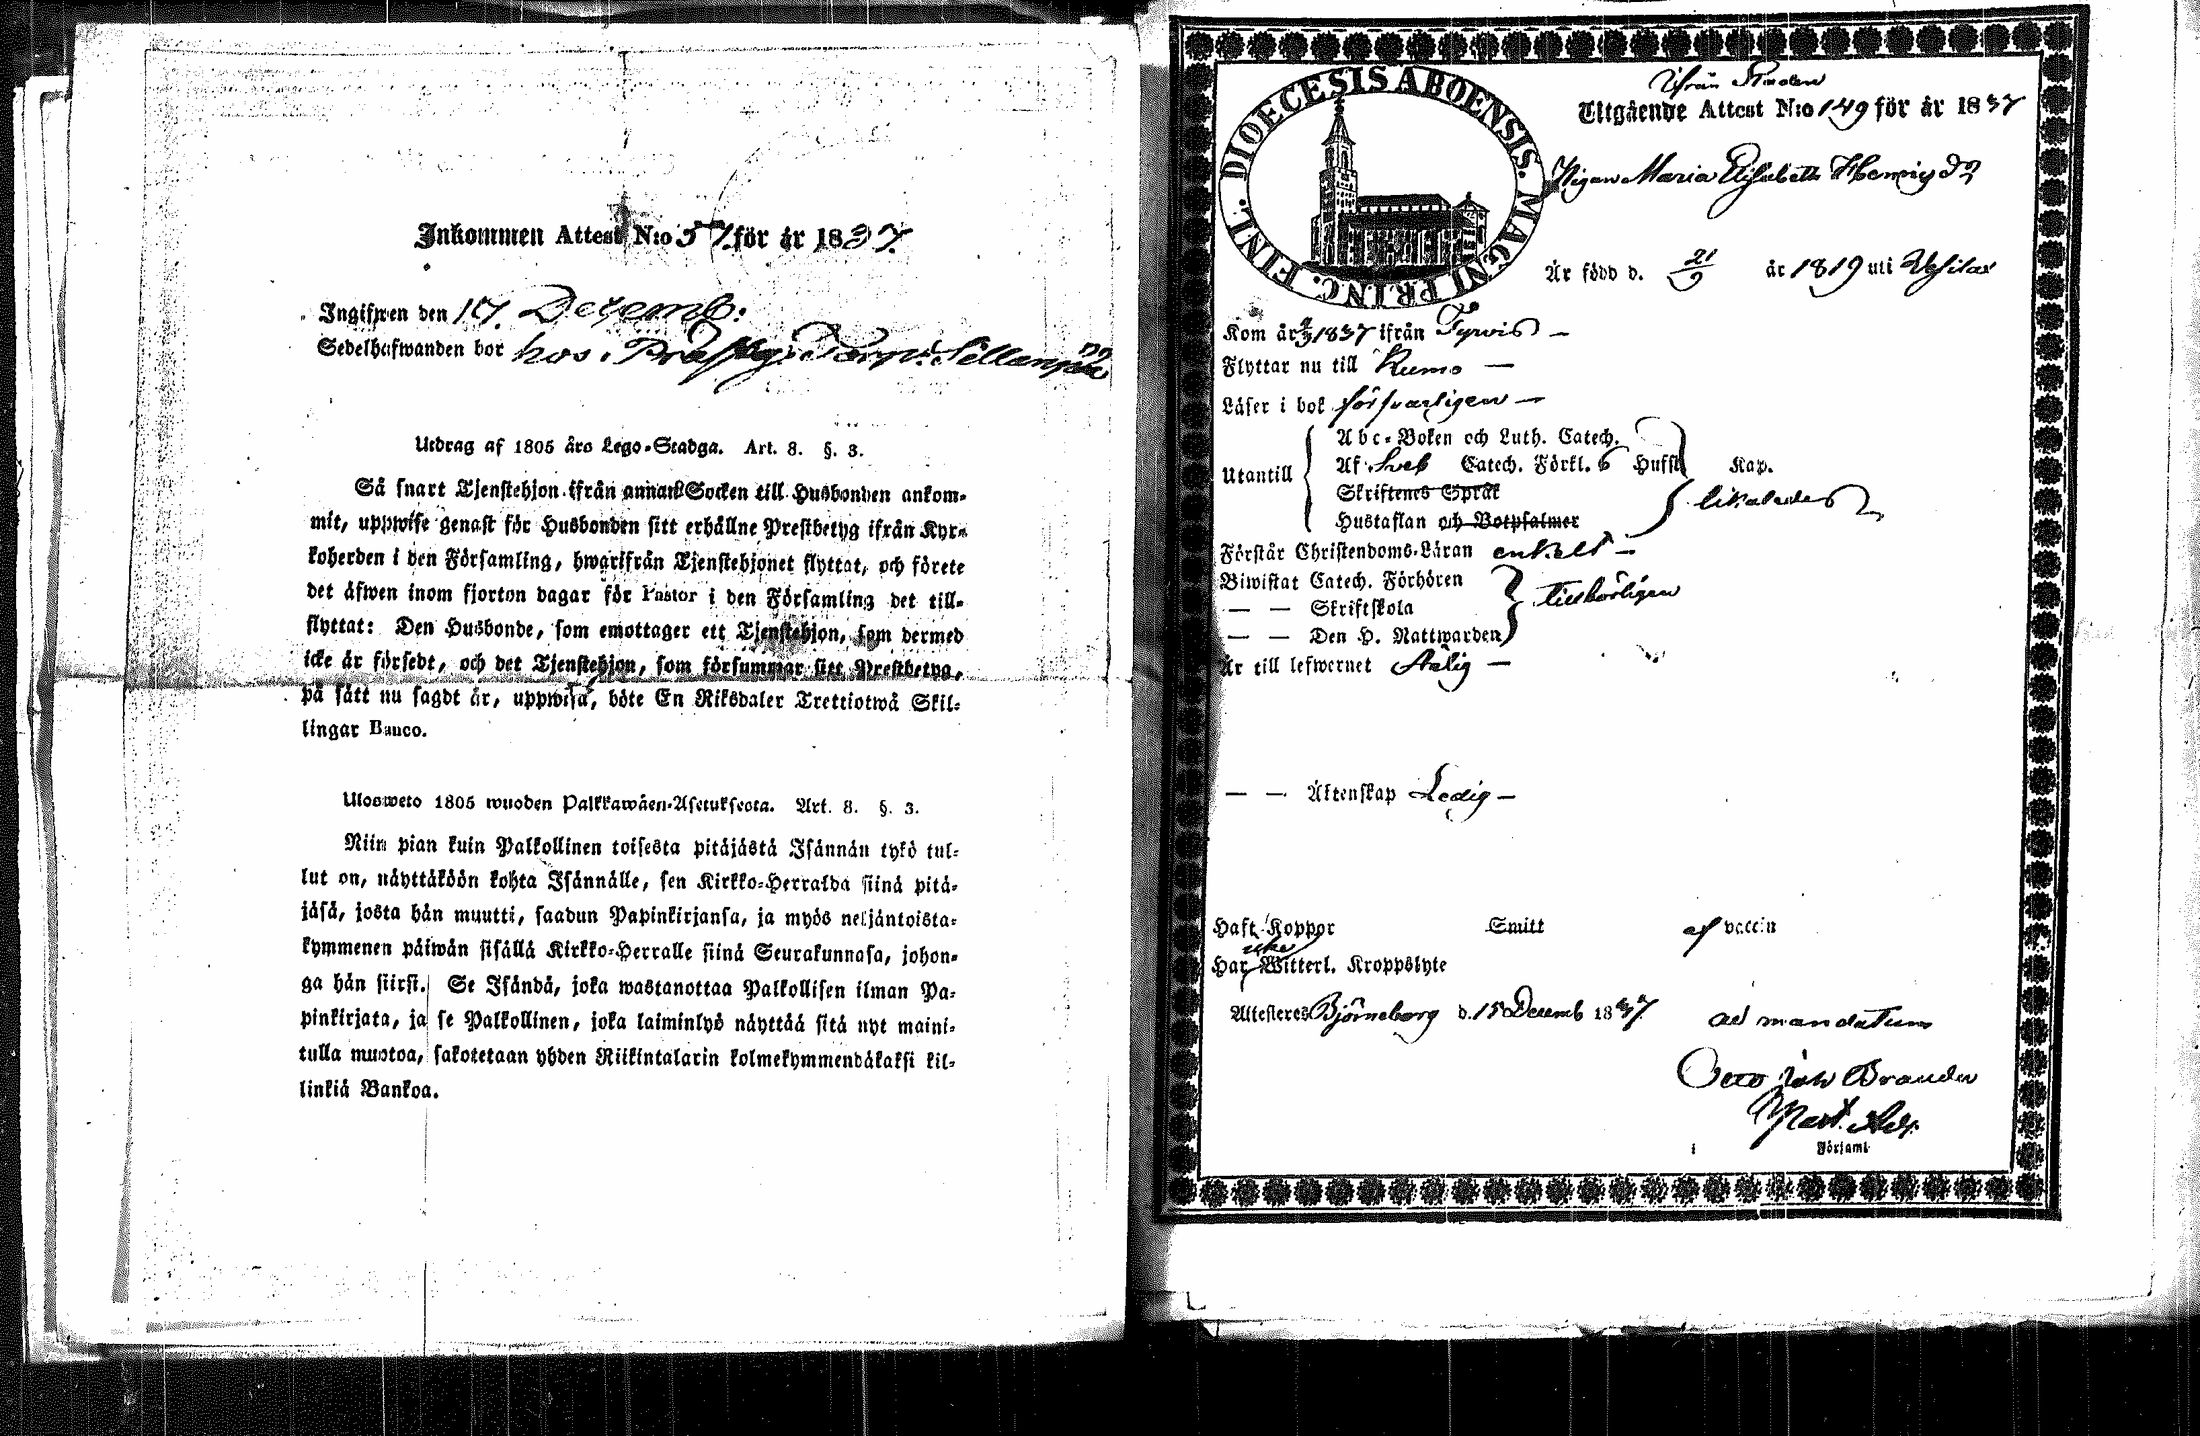 Inkommen Attest N:o 57 för år 1837.
Ingifwen den 17. Decemb:
Sedelhafwanden bor hos
Utdrag af 1805 års Lego-Stadga. Art. 8. §. 3.
Så snart Tjenstehjon ifrån annan Socken till Husbonden ankom-
mit, uppwise genast för Husbonden sitt erhållne Prestbetyg ifrån Kyr-
koherden i den Församling, hwarifrån Tjenstehjonet flyttat, och förete
det äfwen inom fjorton dagar för Pastor i den Församling det till-
flyttat: Den Husbonde, som emottager ett Tjenstehjon, som dermed
icke är försedt, och det Tjenstehjon, som försummar sitt Prestbetyg,
på sätt nu sagdt är, uppwisa, böte En Riksdaler Trettiotwå Skil-
lingar Banco.
Ulosweto 1805 wuoden Palkkawäen-Asetuksesta. Art. 8. §. 3.
Niin pian kuin Palkollinen toisesta pitäjästä Isännän tykö tul-
lut on, näyttäköön kohta Isännälle, sen Kirkko-Herralda siinä pitä-
jäsä, josta hän muutti, saadun Papinkirjansa, ja myös neljäntoista-
kymmenen päiwän sisällä Kirkko-Herralle siinä Seurakunnasa, johon-
ga hän siirsi. Se Isändä, joka wastanottaa Palkollisen ilman Pa-
pinkirjata, ja se Palkollinen, joka laiminlyö näyttää sitä nyt maini-
tulla muotoa, sakotetaan yhden Riikintalarin kolmekymmendäkaksi kil-
linkiä Bankoa.
DIOECESIS ABOENSIS. MAGNI PRINC. FINL.
Ifrån Staden
Utgående Attest N:o 149 för år 1837
Pigan Maria Elisabeth Henrigsd:r
Är född d. 21/9 år 1819 uti
Kom år 1837 ifrån Tyrvis —
Flyttar nu till Kumo —
Läser i bok försvarligen —
Utantill
Abc-Boken och Luth. Catech.
Af Sveb Catech. Förkl. 6 Hufst Kap.
Skriftenes Språk
Hustaflan och Botpsalmer
likaledes
Förstår Christendoms-Läran enkelt —
Biwistat Catech. Förhören
— — Skriftskola
— — Den H. Nattwarden
tillbörligen
Är till lefwernet Ärlig —
— — Äktenskap Ledig —
Haft Koppor Smitt af vaccin
icke
Har Witterl. Kroppslyte
Attesteres Björneborg d. 15 Decemb 1837
ad mandatum
Otto Joh Brander
Församl